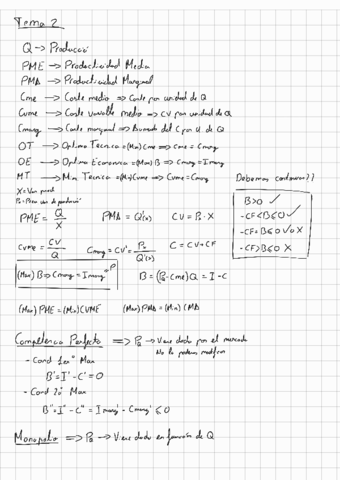 Tema 2
Q → Producció
PME → Productividad Media
PMA → Productividad Marginal
Cme → Coste medio ⇒ Coste por unidad de Q
Cvme → Coste variable medio ⇒ CV por unidad de Q
Cmarg → Coste marginal ⇒ Aumento del C por U de Q
OT → Optimo Tecnico = (Min) Cme ⇒ Cme = Cmarg
OE → Optimo Economico = (Max) B ⇒ Cmarg = Imarg
MT → Min Tecnico = (Min) Cvme ⇒ Cvme = Cmarg
X = Var. prod
Debemos continuar??
B>0 ✓
-CF<B≤0 ✓
-CF=B≤0 ✓ o X
-CF>B≤0 X
PME = Q/X PMA = Q'(x) CV = P₀ · X
Cvme = CV/Q Cmarg = CV' = P₀/Q'(x) C = CV + CF
(Max) B ⇒ Cmarg = Imarg = P B = (Pq - Cme) Q = I - C
(Max) PME = (Min) CVME (Max) PMA = (Min) CMA
Competencia Perfecta ⇒ Pq → Viene dado por el mercado
No lo podemos modificar
- Cond 1er° Max
B' = I' - C' = 0
- Cond 2° Max
B'' = I'' - C'' = Imarg' - Cmarg' ≤ 0
Monopolio ⇒ Pq → Viene dado en función de Q